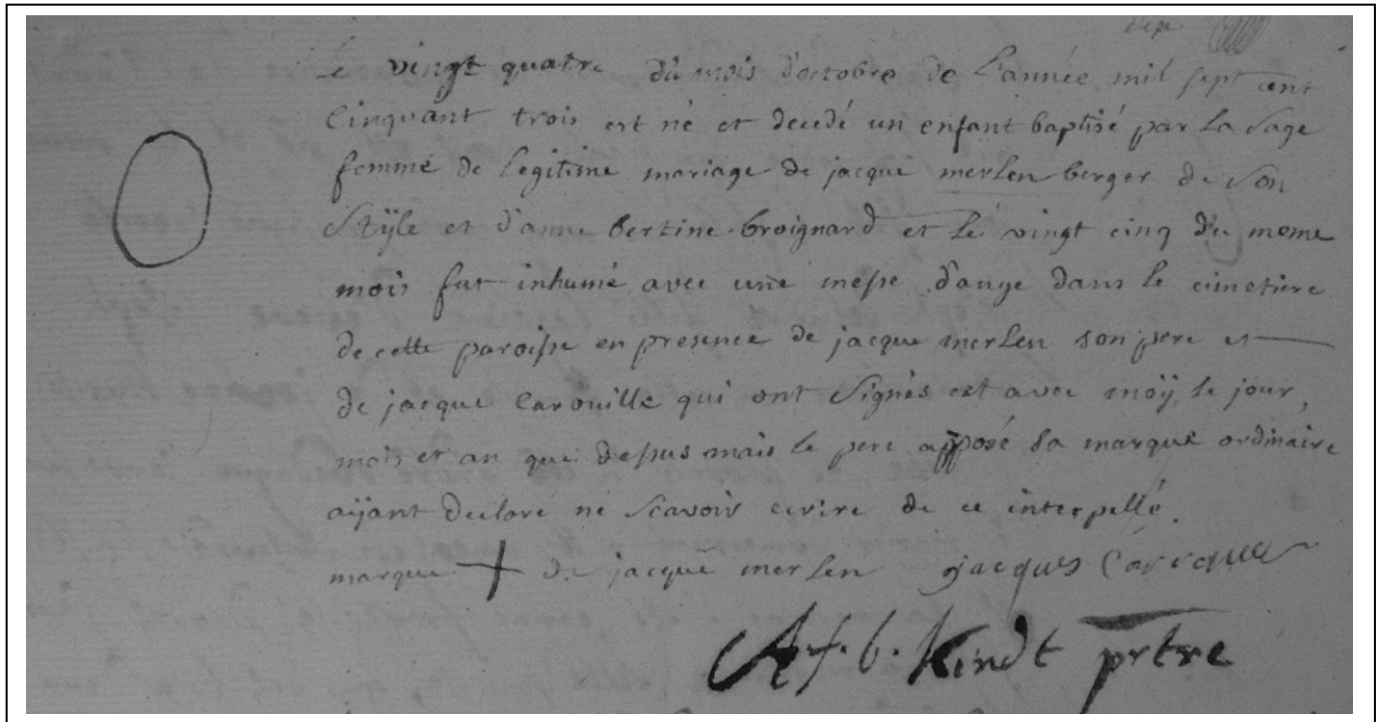 Le vingt quatre du mois d'octobre de L'année mil sept cent
Cinquant trois est né et decedé un enfant baptisé par La sage
femme de Legitime mariage de jacque merlen berger de son
Stÿle et d'anne bertine broignard et Le vingt cinq du meme
mois fut inhumé avec une messe d'ange dans le cimetiere
de cette paroisse en presence de jacque merlen son pere et
de jacque Carouille qui ont signés cet avec moÿ, le jour,
mois et an que dessus mais le pere apposé sa marque ordinaire
aÿant declare ne scavoir ecrire de ce interpellé.
marque + de jacque merlen jacques
A.f.b. Kindt prtre